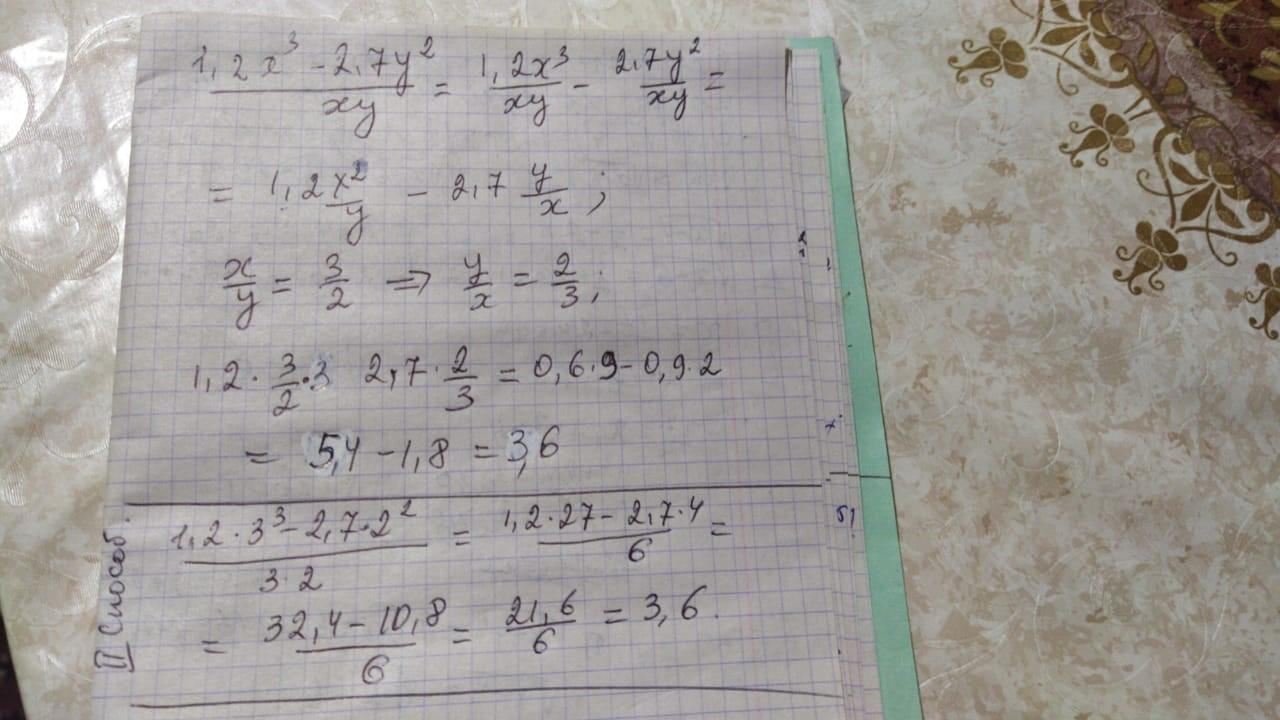 (1,2x³ - 2,7y²)/(xy) = (1,2x³)/(xy) - (2,7y²)/(xy) =
= 1,2 x²/y - 2,7 y/x ;
x/y = 3/2 ⇒ y/x = 2/3 ;
1,2 · 3/2 · 3 2,7 · 2/3 = 0,6·9 - 0,9·2
= 5,4 - 1,8 = 3,6
II Способ.
(1,2·3³ - 2,7·2²)/(3·2) = (1,2·27 - 2,7·4)/6 =
= (32,4 - 10,8)/6 = 21,6/6 = 3,6.